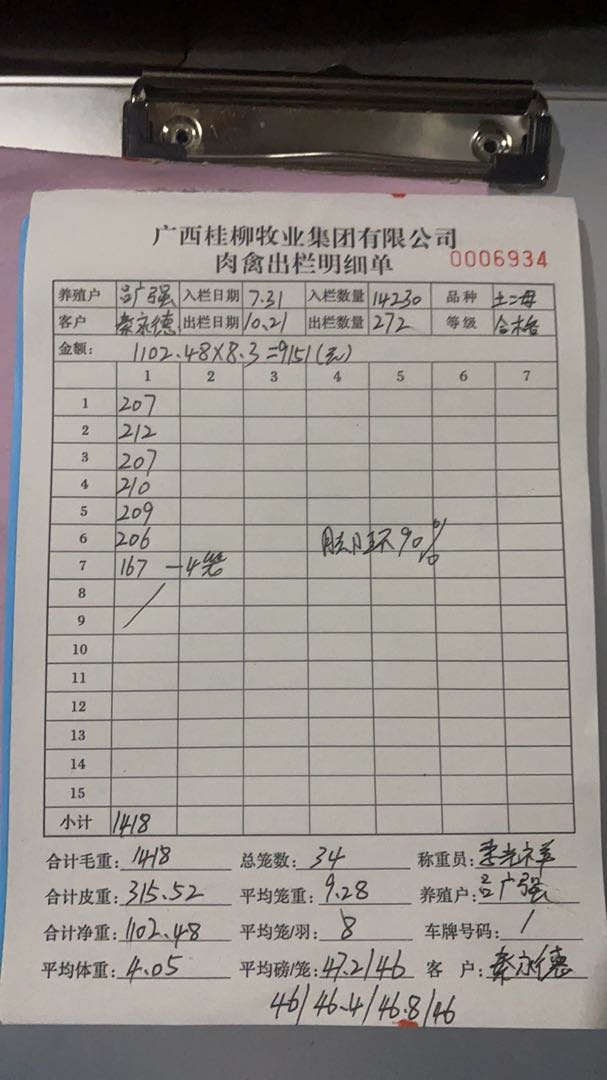 广西桂柳牧业集团有限公司
肉禽出栏明细单 0006934
养殖户 吕广强 入栏日期 7.31 入栏数量 14230 品种 土二母
客户 秦京德 出栏日期 10.21 出栏数量 272 等级 合格
金额: 1102.48×8.3=9151(元)
1 2 3 4 5 6 7
1 207
2 212
3 207
4 210
5 209
6 206 脚环90%
7 167 -4笼
8
9
10
11
12
13
14
15
小计 1418
合计毛重: 1418 总笼数: 34 称重员:
合计皮重: 315.52 平均笼重: 9.28 养殖户: 吕广强
合计净重: 1102.48 平均笼/羽: 8 车牌号码: /
平均体重: 4.05 平均磅/笼: 47.2/46 客户: 秦京德
46/46.4/46.8/46